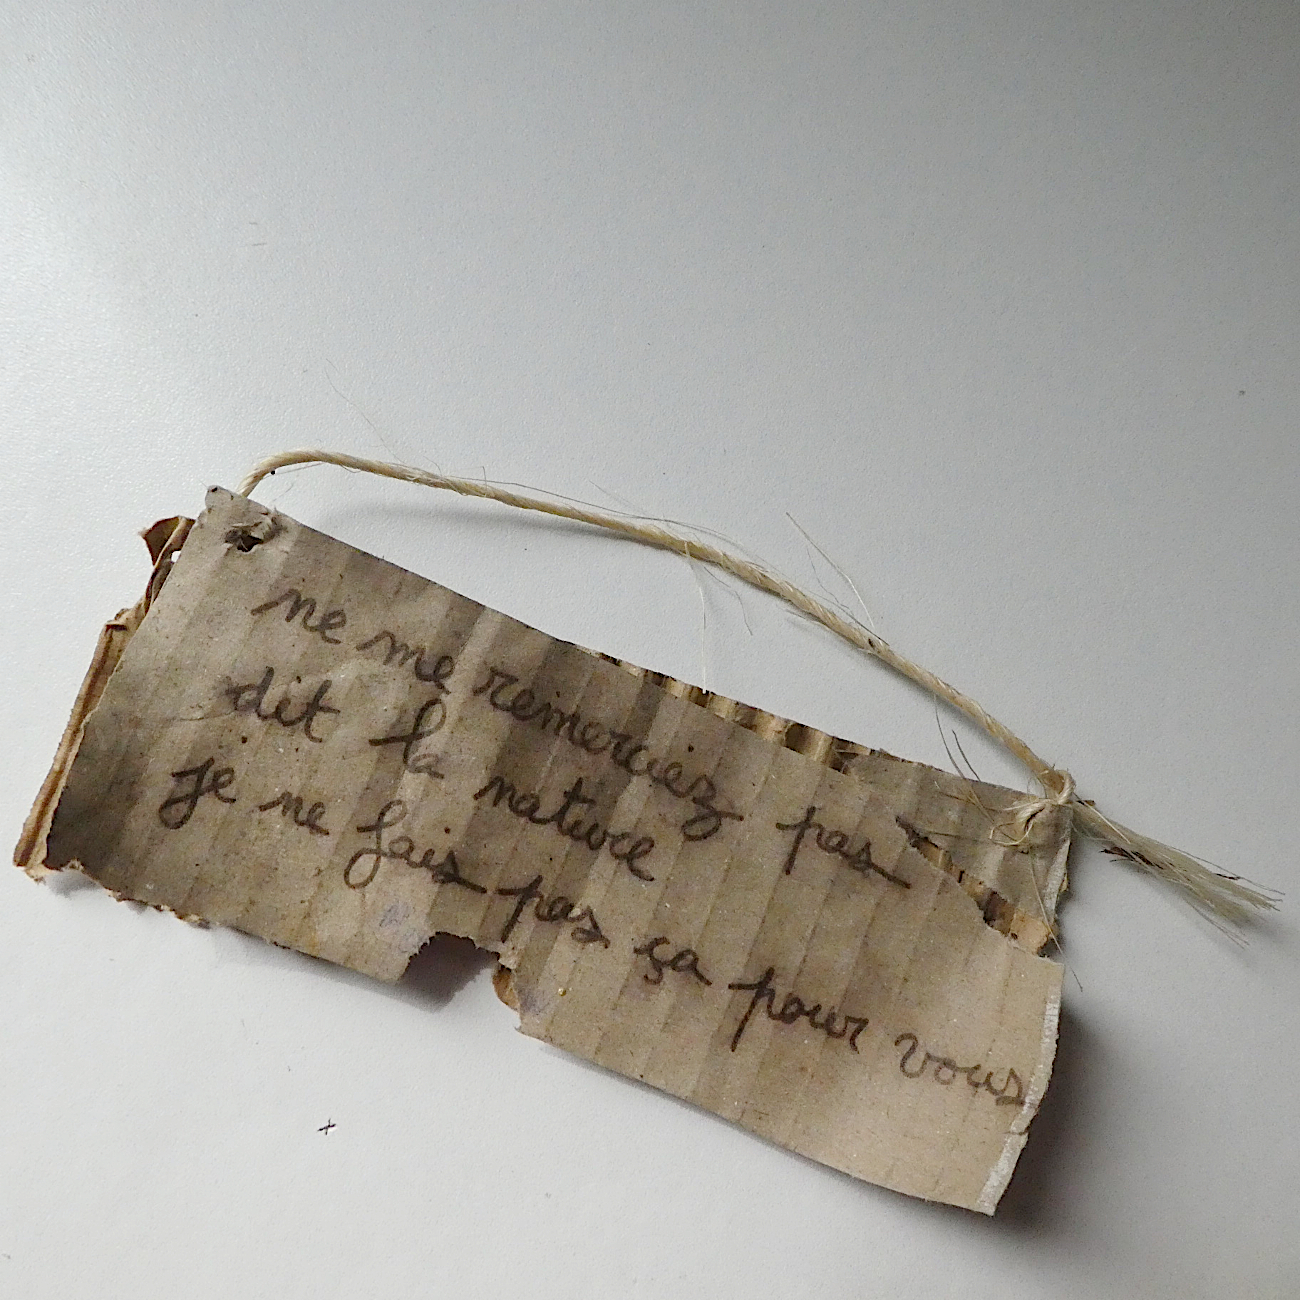 ne me remerciez pas
dit la nature
je ne fais pas ça pour vous